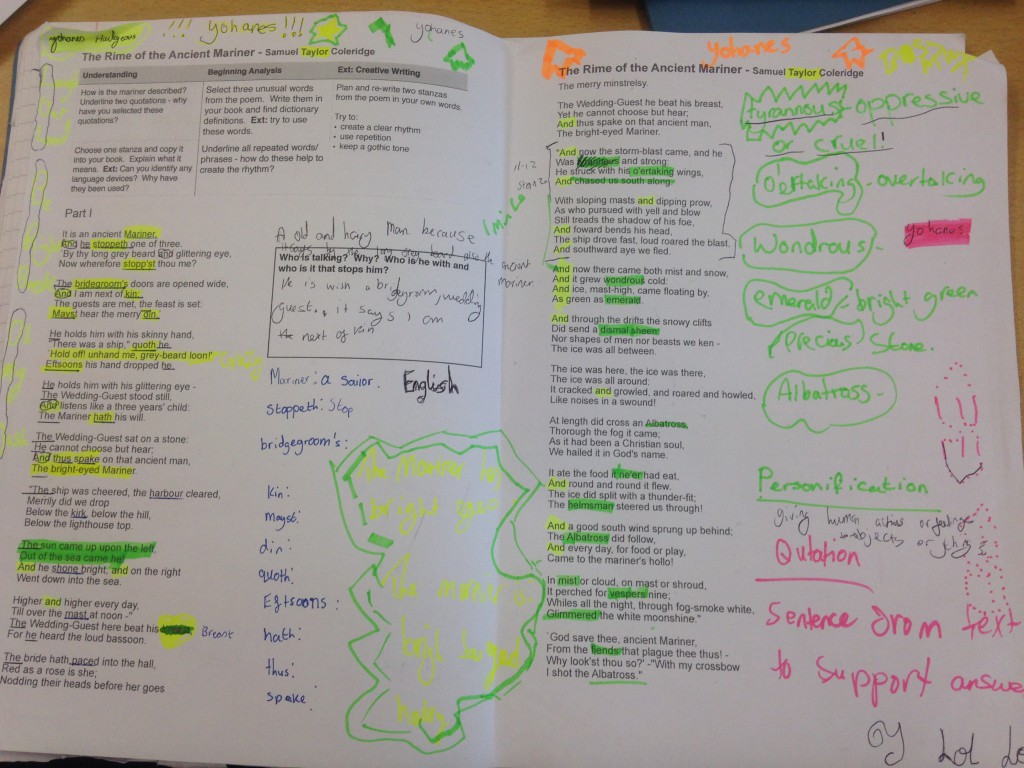 yohanes Hadgeous
!!! yohanes!!!
yohanes
The Rime of the Ancient Mariner - Samuel Taylor Coleridge
Understanding
How is the mariner described?
Underline two quotations - why
have you selected these
quotations?
Choose one stanza and copy it
into your book. Explain what it
means. Ext: Can you identify any
language devices? Why have
they been used?
Beginning Analysis
Select three unusual words
from the poem. Write them in
your book and find dictionary
definitions. Ext: try to use
these words.
Underline all repeated words/
phrases - how do these help to
create the rhythm?
Ext: Creative Writing
Plan and re-write two stanzas
from the poem in your own words.
Try to:
• create a clear rhythm
• use repetition
• keep a gothic tone
Part I
It is an ancient Mariner,
And he stoppeth one of three.
'By thy long grey beard and glittering eye,
Now wherefore stopp'st thou me?
The bridegroom's doors are opened wide,
And I am next of kin;
The guests are met, the feast is set:
Mayst hear the merry din.'
He holds him with his skinny hand,
"There was a ship," quoth he.
'Hold off! unhand me, grey-beard loon!'
Eftsoons his hand dropped he.
He holds him with his glittering eye -
The Wedding-Guest stood still,
And listens like a three years' child:
The Mariner hath his will.
The Wedding-Guest sat on a stone:
He cannot choose but hear;
And thus spake on that ancient man,
The bright-eyed Mariner.
"The ship was cheered, the harbour cleared,
Merrily did we drop
Below the kirk, below the hill,
Below the lighthouse top.
The sun came up upon the left,
Out of the sea came he!
And he shone bright, and on the right
Went down into the sea.
Higher and higher every day,
Till over the mast at noon -"
The Wedding-Guest here beat his
Breast
For he heard the loud bassoon.
The bride hath paced into the hall,
Red as a rose is she;
Nodding their heads before her goes
A old and hairy man because
ancient
mariner.
Who is talking? Why? Who is he with and
who is it that stops him?
He is with a bridegroom, wedding
guest. it says I am
next of kin
Mariner: a sailor.
English
stoppeth: Stop
bridgegroom's:
kin:
mayst:
din:
quoth:
Eftsoons:
hath:
thus:
spake:
The mariner has
bright eyes
The mariner is
yohanes
The Rime of the Ancient Mariner - Samuel Taylor Coleridge
The merry minstrelsy.
The Wedding-Guest he beat his breast,
Yet he cannot choose but hear;
And thus spake on that ancient man,
The bright-eyed Mariner.
"And now the storm-blast came, and he
Was tyrannous and strong:
He struck with his o'ertaking wings,
And chased us south along.
With sloping masts and dipping prow,
As who pursued with yell and blow
Still treads the shadow of his foe,
And foward bends his head,
The ship drove fast, loud roared the blast,
And southward aye we fled.
And now there came both mist and snow,
And it grew wondrous cold:
And ice, mast-high, came floating by,
As green as emerald.
And through the drifts the snowy clifts
Did send a dismal sheen:
Nor shapes of men nor beasts we ken -
The ice was all between.
The ice was here, the ice was there,
The ice was all around:
It cracked and growled, and roared and howled,
Like noises in a swound!
At length did cross an Albatross,
Thorough the fog it came;
As it had been a Christian soul,
We hailed it in God's name.
It ate the food it ne'er had eat,
And round and round it flew.
The ice did split with a thunder-fit;
The helmsman steered us through!
And a good south wind sprung up behind;
The Albatross did follow,
And every day, for food or play,
Came to the mariner's hollo!
In mist or cloud, on mast or shroud,
It perched for vespers nine;
Whiles all the night, through fog-smoke white,
Glimmered the white moonshine."
'God save thee, ancient Mariner,
From the fiends that plague thee thus! -
Why look'st thou so?' -"With my crossbow
I shot the Albatross."
tyrannous: oppressive
or cruel!
O'ertaking - overtaking
yohanes
Wondrous -
emerald: bright green
precious Stone.
Albatross -
!!!
!!!
Personification
giving human
Qutation
Sentence from text
to support answer